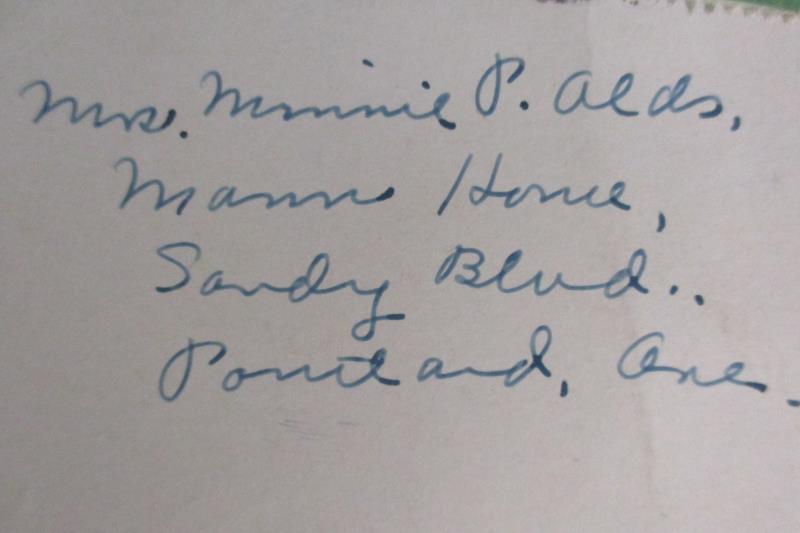 Mrs. Minnie P. Olds,
Mann Home,
Sandy Blvd..
Portland, Ore.